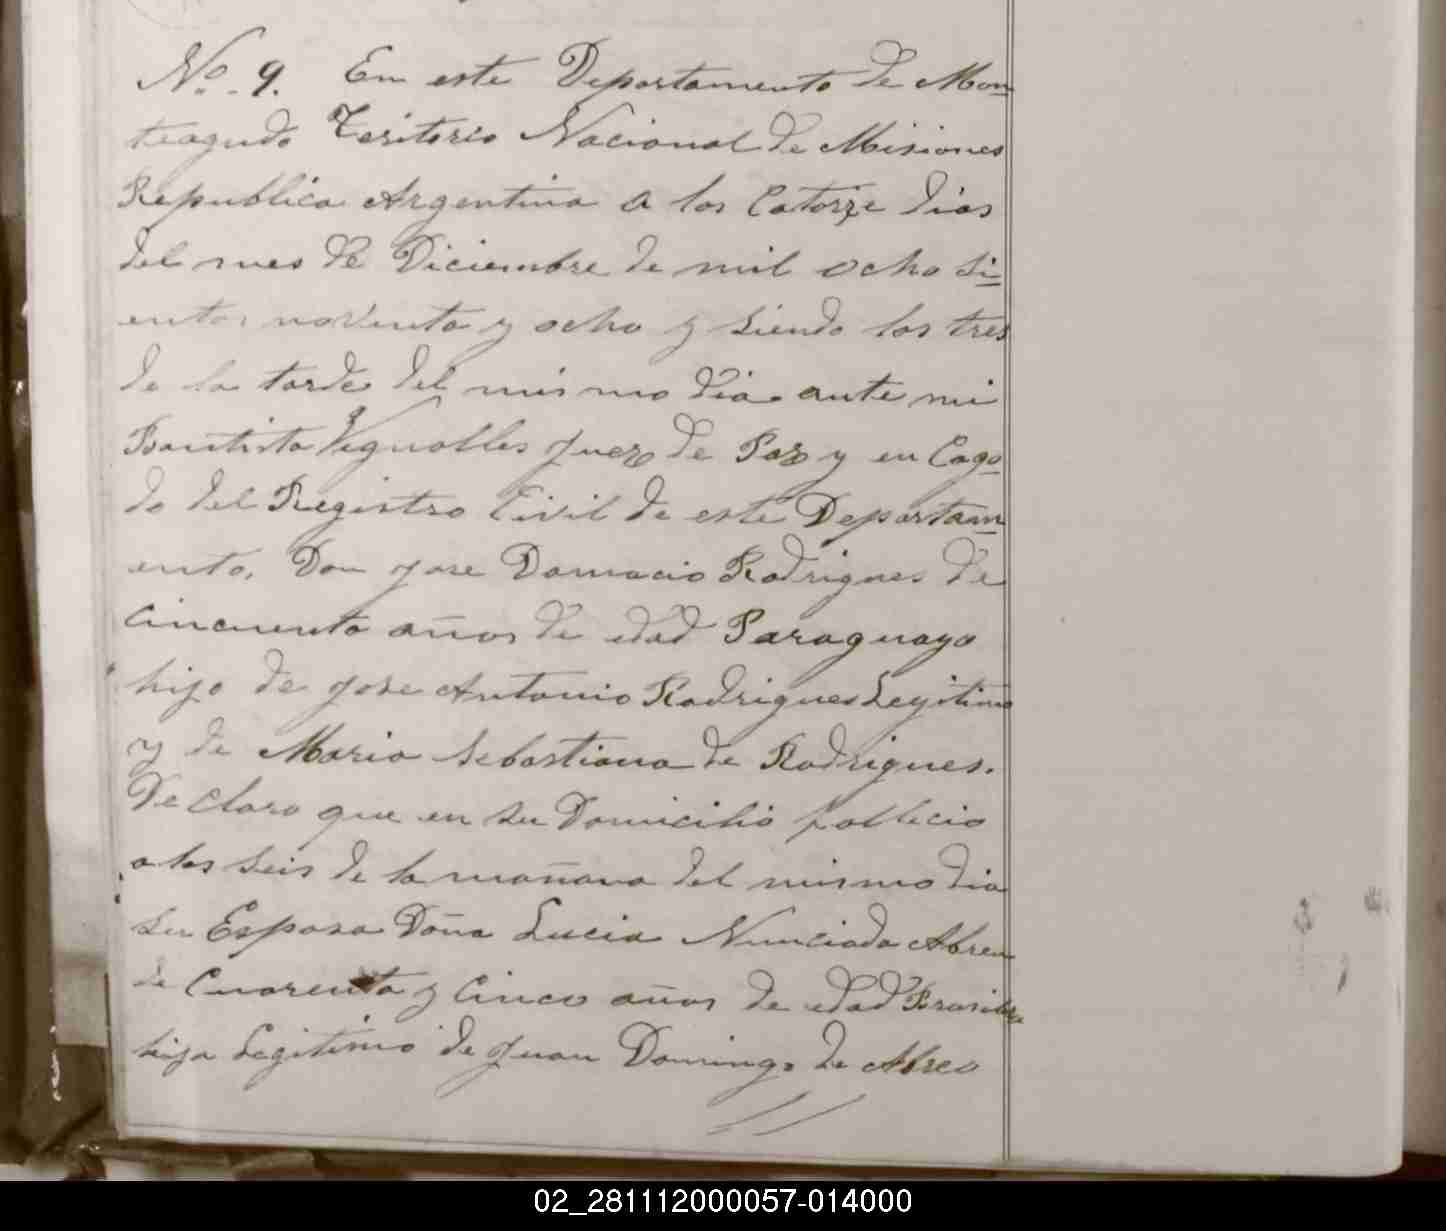 No. 9. En este Departamento de Mon
teagudo Teritorio Nacional de Misiones
Republica Argentina a los Catorze dias
del mes de Diciembre de mil ocho si
entos noventa y ocho y siendo las tres
de la tarde del mismo dia ante mi
Bautista Vignolles Juez de Paz y en Caga
do del Registro Civil de este Departam
ento, Don Jose Damacio Rodrigues de
Cincuenta años de edad Paraguayo
hijo de Jose Antonio Rodrigues Legitimo
y de Maria Sebastiana de Rodrigues.
Declaro que en su Domicilio fallecio
a las seis de la mañana del mismo dia
su Esposa Doña Lucia Nunciada Abreu
de Cuarenta y Cinco años de edad
hija Legitimo de Juan Domingo de Abreo
02_281112000057-014000